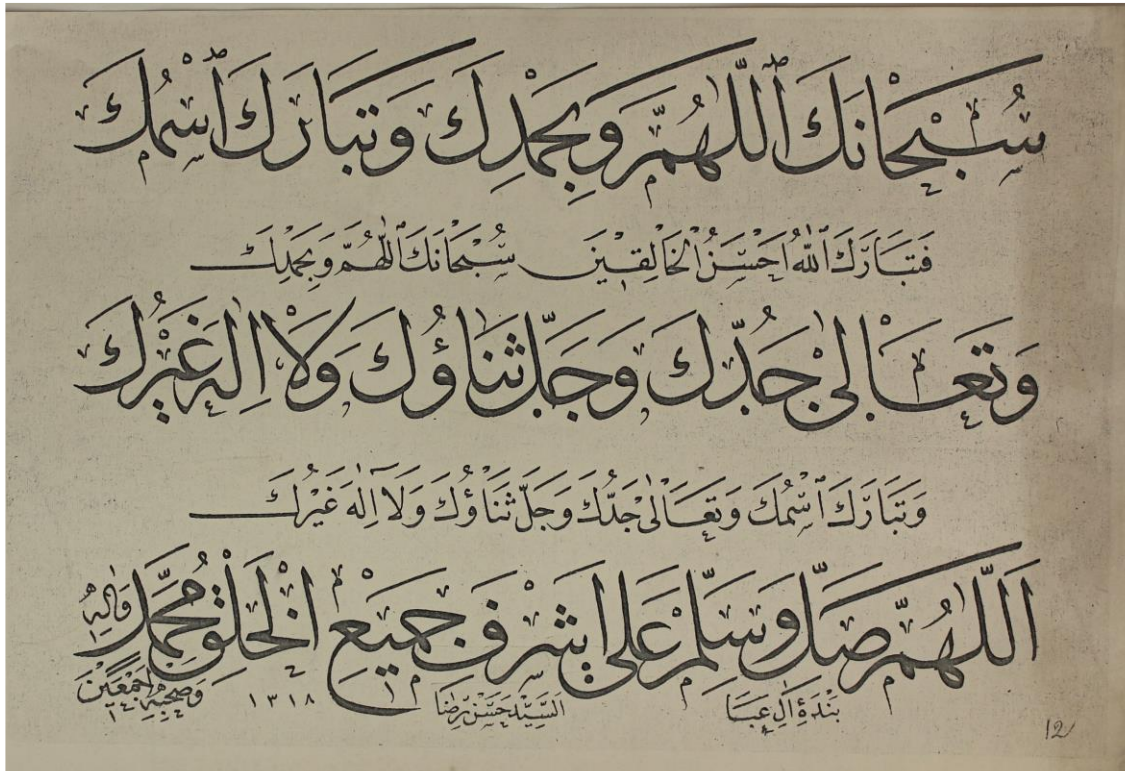 سُبْحَانَكَ ٱللّٰهُمَّ وَبِحَمْدِكَ وَتَبَارَكَ ٱسْمُكَ
فَتَبَارَكَ ٱللّٰهُ اَحْسَنُ الْخَالِقِينَ سُبْحَانَكَ ٱللّٰهُمَّ وَبِحَمْدِكَ
وَتَعَالٰى جَدُّكَ وَجَلَّ ثَنَاؤُكَ وَلَا اِلٰهَ غَيْرُكَ
وَتَبَارَكَ ٱسْمُكَ وَتَعَالٰى جَدُّكَ وَجَلَّ ثَنَاؤُكَ وَلَآ اِلٰهَ غَيْرُكَ
اَللّٰهُمَّ صَلِّ وَسَلِّمْ عَلٰى اَشْرَفِ جَمِيعِ الْخَلْقِ مُحَمَّدٍ وَاٰلِهِ
وَصَحْبِهِ اَجْمَعِينَ
بَنْدَهٔ اٰلِ عَبَا السَّيِّدْ حَسَنْ رِضَا ١٣١٨
12